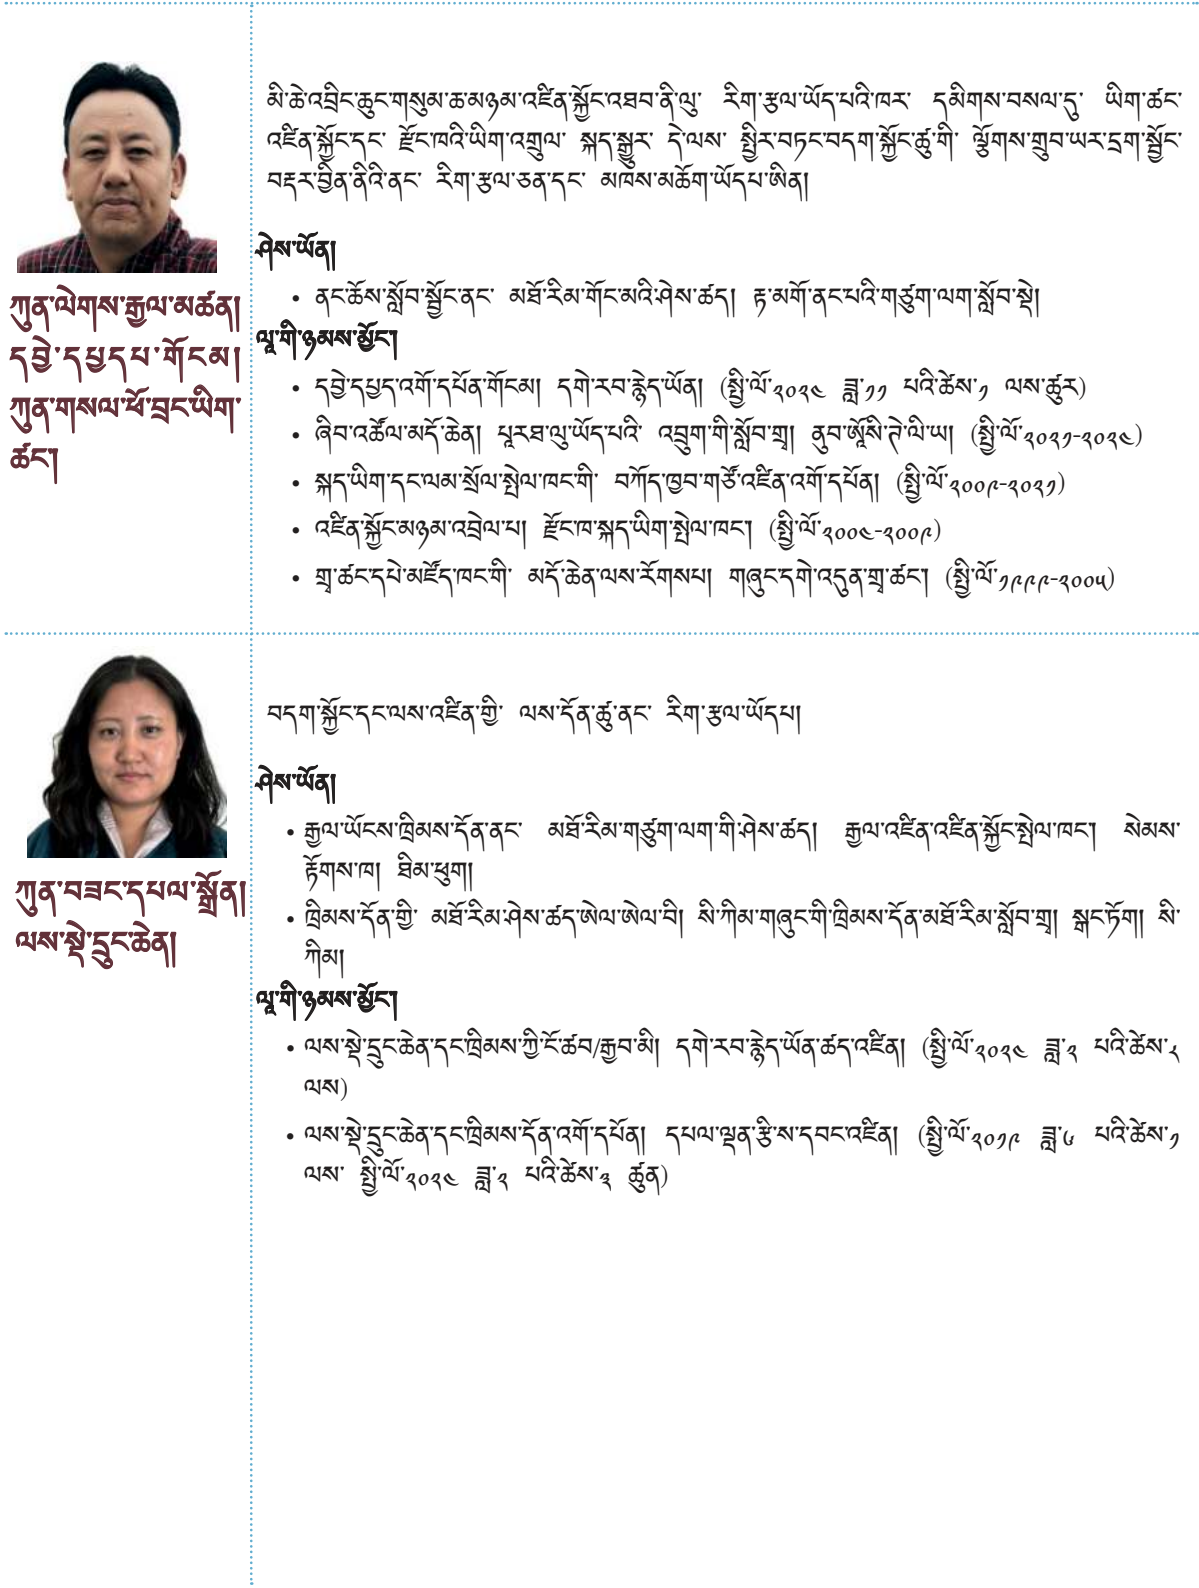 ཀུན་ལེགས་རྒྱལ་མཚན།
དབྱེ་དཔྱདཔ་གོངམ།
ཀུན་གསལ་ཕོ་བྲང་ཡིག་
ཚང་།
མི་ཆེ་འབྲིང་ཆུང་གསུམ་ཆ་མཉམ་འཛིན་སྐྱོང་འཐབ་ནི་ལུ་ རིག་རྩལ་ཡོད་པའི་ཁར་ དམིགས་བསལ་དུ་ ཡིག་ཚང་
འཛིན་སྐྱོང་དང་ རྫོང་ཁའི་ཡིག་འགྲུལ་ སྐད་སྒྱུར་ དེ་ལས་ སྤྱིར་བཏང་བདག་སྐྱོང་ཚུ་གི་ ལྕོགས་གྲུབ་ཡར་དྲག་སྦྱོང་
བརྡར་བྱིན་ནིའི་ནང་ རིག་རྩལ་ཅན་དང་ མཁས་མཆོག་ཡོདཔ་ཨིན།
ཤེས་ཡོན།
• ནང་ཆོས་སློབ་སྦྱོང་ནང་ མཐོ་རིམ་གོང་མའི་ཤེས་ཚད། རྟ་མགོ་ནང་པའི་གཙུག་ལག་སློབ་སྡེ།
ལཱ་གི་ཉམས་མྱོང་།
• དབྱེ་དཔྱད་འགོ་དཔོན་གོངམ། དགེ་རབ་རྙེད་ཡོན། (སྤྱི་ལོ་༢༠༢༤ ཟླ་༡༡ པའི་ཚེས་༡ ལས་ཚུར)
• ཞིབ་འཚོལ་མདོ་ཆེན། པཱརཐ་ལུ་ཡོད་པའི་ འབྲུག་གི་སློབ་གྲྭ། ནུབ་ཨོསི་ཊེ་ལི་ཡ། (སྤྱི་ལོ་༢༠༢༡-༢༠༢༤)
• སྐད་ཡིག་དང་ལམ་སྲོལ་སྤེལ་ཁང་གི་ བཀོད་ཁྱབ་གཙོ་འཛིན་འགོ་དཔོན། (སྤྱི་ལོ་༢༠༠༩-༢༠༢༡)
• འཛིན་སྐྱོང་མཉམ་འབྲེལ་པ། རྫོང་ཁ་སྐད་ཡིག་སྤེལ་ཁང་། (སྤྱི་ལོ་༢༠༠༤-༢༠༠༩)
• གྲྭ་ཚང་དཔེ་མཛོད་ཁང་གི་ མདོ་ཆེན་ལས་རོགསཔ། གཞུང་དགེ་འདུན་གྲྭ་ཚང་། (སྤྱི་ལོ་༡༩༩༩-༢༠༠༥)
ཀུན་བཟང་དཔལ་སྒྲོན།
ལས་སྡེ་དྲུང་ཆེན།
བདག་སྐྱོང་དང་ལས་འཛིན་གྱི་ ལས་དོན་ཚུ་ནང་ རིག་རྩལ་ཡོདཔ།
ཤེས་ཡོན།
• རྒྱལ་ཡོངས་ཁྲིམས་དོན་ནང་ མཐོ་རིམ་གཙུག་ལག་གི་ཤེས་ཚད། རྒྱལ་འཛིན་འཛིན་སྐྱོང་སྤེལ་ཁང་། སེམས་
རྟོགས་ཁ། ཐིམ་ཕུག།
• ཁྲིམས་དོན་གྱི་ མཐོ་རིམ་ཤེས་ཚད་ཨེལ་ཨེལ་བི། སི་ཀིམ་གཞུང་གི་ཁྲིམས་དོན་མཐོ་རིམ་སློབ་གྲྭ། སྒང་ཏོག། སི་
ཀིམ།
ལཱ་གི་ཉམས་མྱོང་།
• ལས་སྡེ་དྲུང་ཆེན་དང་ཁྲིམས་ཀྱི་ངོ་ཚབ/རྒྱབ་མི། དགེ་རབ་རྙེད་ཡོན་ཚད་འཛིན། (སྤྱི་ལོ་༢༠༢༤ ཟླ་༢ པའི་ཚེས་༨
ལས)
• ལས་སྡེ་དྲུང་ཆེན་དང་ཁྲིམས་དོན་འགོ་དཔོན། དཔལ་ལྡན་རྩི་ས་དབང་འཛིན། (སྤྱི་ལོ་༢༠༡༩ ཟླ་༦ པའི་ཚེས་༡
ལས་ སྤྱི་ལོ་༢༠༢༤ ཟླ་༢ པའི་ཚེས་༣ ཚུན)